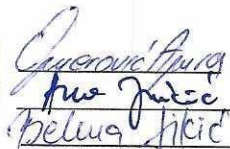 Omerović Amra
Ana Jukić
Belma Šikić